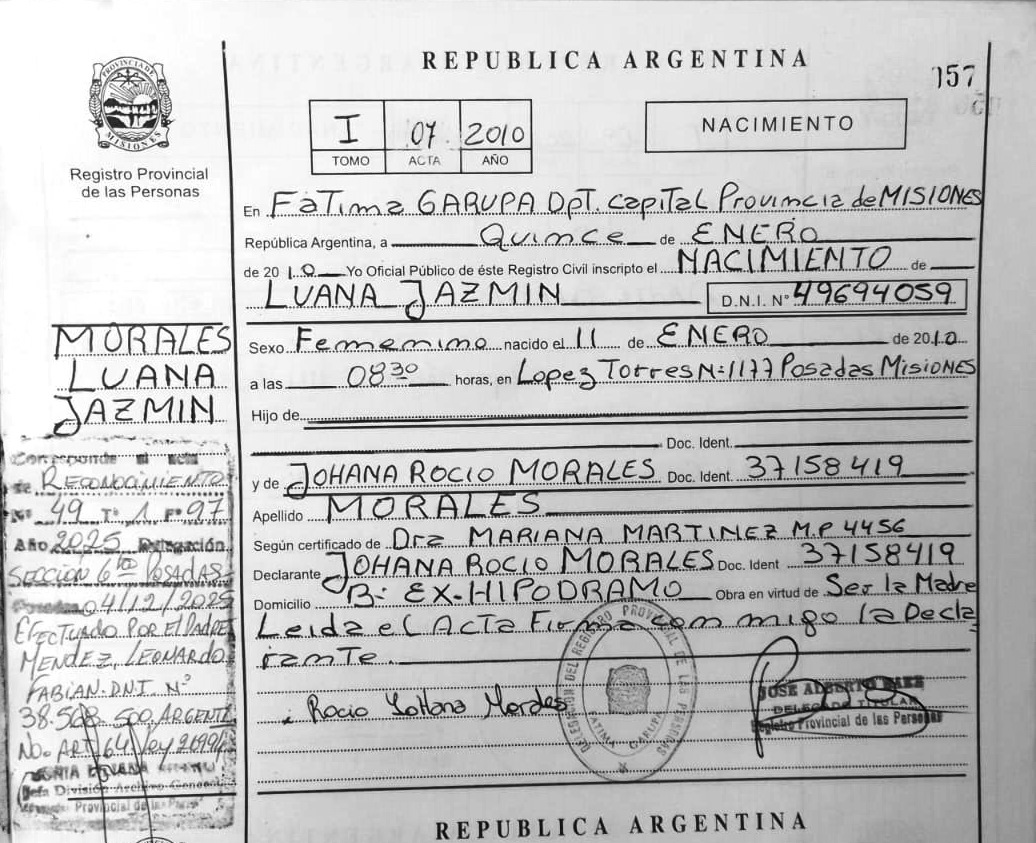 REPUBLICA ARGENTINA
157
PROVINCIA DE MISIONES
Registro Provincial
de las Personas
I 07 2010
TOMO ACTA AÑO
NACIMIENTO
En FaTima GARUPA DpT. capiTal Provincia de MISIONES
República Argentina, a Quince de ENERO
de 2010 Yo Oficial Público de éste Registro Civil inscripto el NACIMIENTO de
LUANA JAZMIN D.N.I. N° 49694059
Sexo Femenino nacido el 11 de ENERO de 2010
a las 08 30 horas, en Lopez Torres N: 1177 Posadas Misiones
Hijo de
Doc. Ident.
y de JOHANA ROCIO MORALES Doc. Ident. 37158419
Apellido MORALES
Según certificado de Dra MARIANA MARTINEZ M.P. 4456
Declarante JOHANA ROCIO MORALES Doc. Ident 37158419
Domicilio B: EX-HIPODRAMO Obra en virtud de Ser la Madre
Leida el Acta Firma con migo la Decla
rante.
Rocio Johana Morales
DELEGACION DEL REGISTRO PROVINCIAL DE LAS PERSONAS
FATIMA GARUPA
JOSE ALBERTO BAEZ
DELEGADO TITULAR
Registro Provincial de las Personas
MORALES
LUANA
JAZMIN
Corresponde al acta
de RECONOCIMIENTO
N° 49 T° 1 F° 97
Año 2025 Delegación
SECCION 6ta POSADAS
Posadas 04/12/2025
EFECTUADO POR EL PADRE
MENDEZ, LEONARDO
FABIAN. D.N.I. N°
38.568.500. ARGENTI
NO. ART 64 Ley
Jefa División Archivo General
Provincial de las Pers
REPUBLICA ARGENTINA